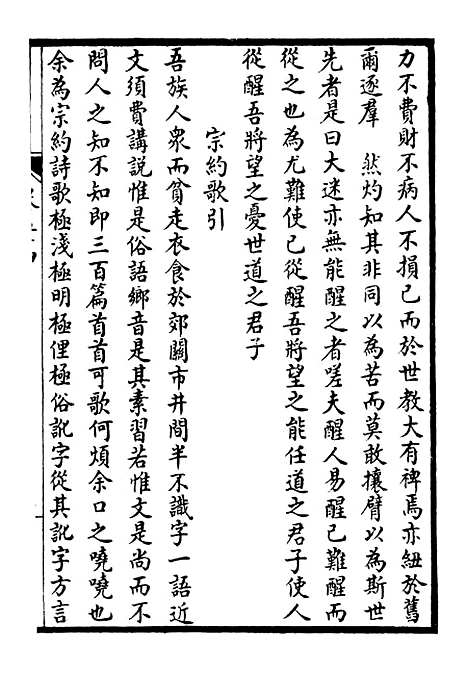 力不費財不病人不損己而於世教大有裨焉亦紐於舊
爾逐羣　然灼知其非同以為苦而莫敢攘臂以為斯世
先者是曰大迷亦無能醒之者嗟夫醒人易醒已難醒而
從之也為尤難使已從醒吾將望之能任道之君子使人
從醒吾將望之憂世道之君子
宗約歌引
吾族人衆而貧走衣食於郊關市井間半不識字一語近
文須費講説惟是俗語鄉音是其素習若惟文是尚而不
問人之知不知即三百篇首首可歌何煩余口之嘵嘵也
余為宗約詩歌極淺極明極俚極俗訛字從其訛字方言